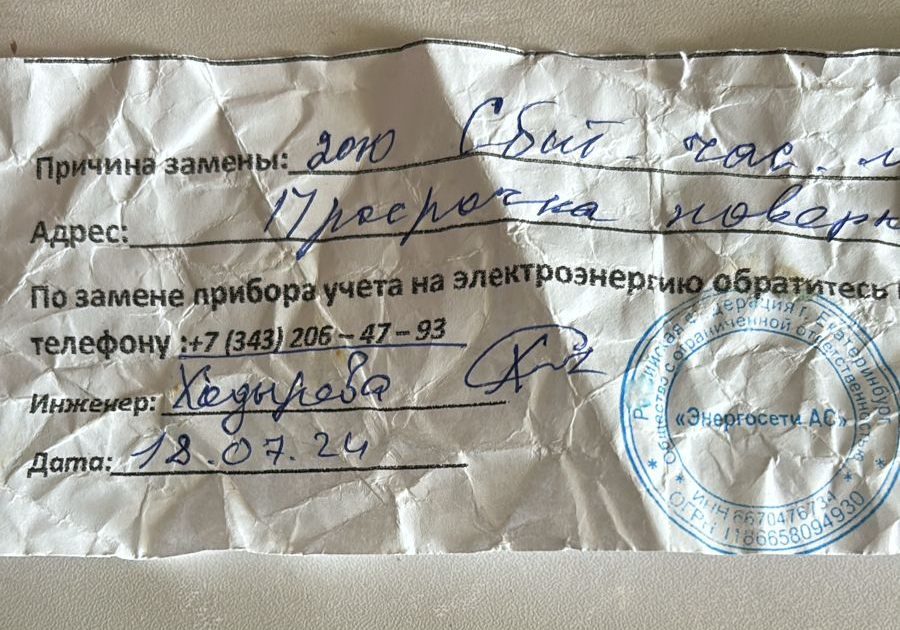 Причина замены: 2010 Сбыт. час.
Адрес: Просрочка поверк
По замене прибора учета на электроэнергию обратитесь
телефону :+7 (343) 206 – 47 – 93
Инженер: Ходырева
Дата: 18.07.24
Российская Федерация г. Екатеринбург
Общество с ограниченной ответственностью
«Энергосети АС»
ИНН 6670476734
ОГРН 1186658094930